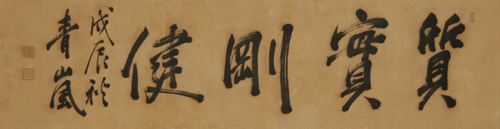 質實剛健
戊辰於
青嵐